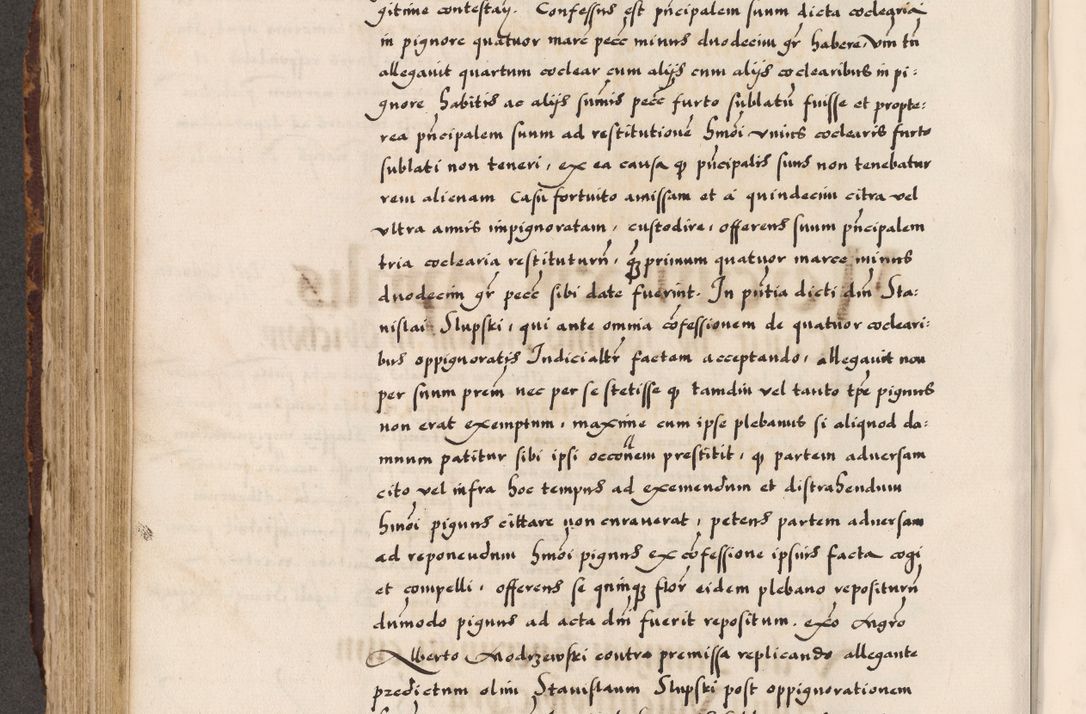 gitime contestaꝶ. Confessus est pñcipalem suum dicta coclearia
in pignore quatuor marc̃ pecc̃ minus duodecim gr̃ habere, Vm̃ tñ
allegauit quartum coclear cum alijs cum alijs coclearibus in pi:
gnore habitis ac alijs sum̃is pecc̃ furto sublatũ fuisse et propte:
rea pñcipalem suum ad restitutionẽ hm̃õi vnius coclearis furto
sublati non teneri, ex ea causa qꝫ pñcipalis suus non tenebatur
rem alienam Casũ fortuito amissam et a quindecim citra vel
vltra annis impignoratam, custodire, offerens suum pñcipalem
tria coclearia restiturũ, qꝫ primum quatuor marce minus
duodecim gr̃ pecc̃ sibi date fuerint. In pñtia dicti dm̃ Sta:
nislai Slupski, qui ante omnia cõfessionem de quatuor cocleari:
bus oppignoratis Iudicialtr̃ factam acceptando, allegauit non
per suum prem̃ nec per se stetisse qꝫ tamdiu vel tanto tpẽ pignus
non erat exemptum, maxime cum ipse plebanus si aliquod da:
mnum patitur sibi ipsi occõnem prestitit, qꝫ partem aduersam
cito vel infra hoc tempus ad exemendum et distrahendum
hm̃õi pignus cittare non curauerat, petens partem aduersam
ad reponendum hm̃õi pignus ex cõfessione ipsius facta cogi
et compelli, offerens se quinqꝫ flor̃ eidem plebano repositurũ
dummodo pignus ad acta dm̃ fuerit repositum. exõ Mgr̃o
Alberto Modrzewski contra premissa replicando allegante
predictum olim Stanislaum Slupski post oppignorationem